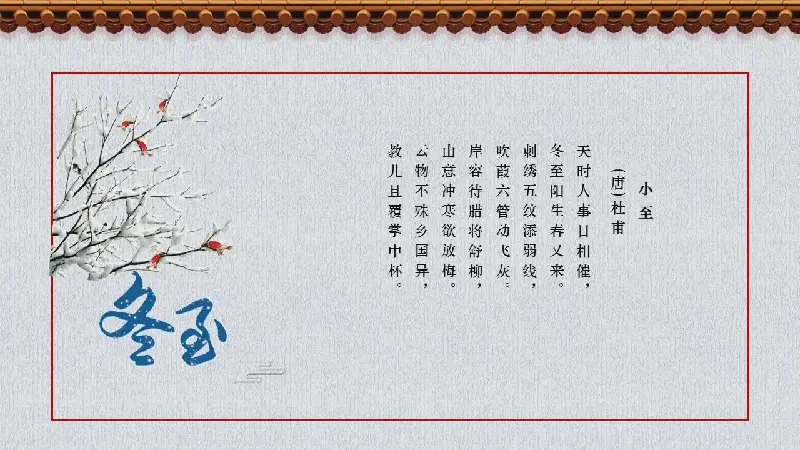 小至
(唐)杜甫
天时人事日相催，
冬至阳生春又来。
刺绣五纹添弱线，
吹葭六管动飞灰。
岸容待腊将舒柳，
山意冲寒欲放梅。
云物不殊乡国异，
教儿且覆掌中杯。
冬至